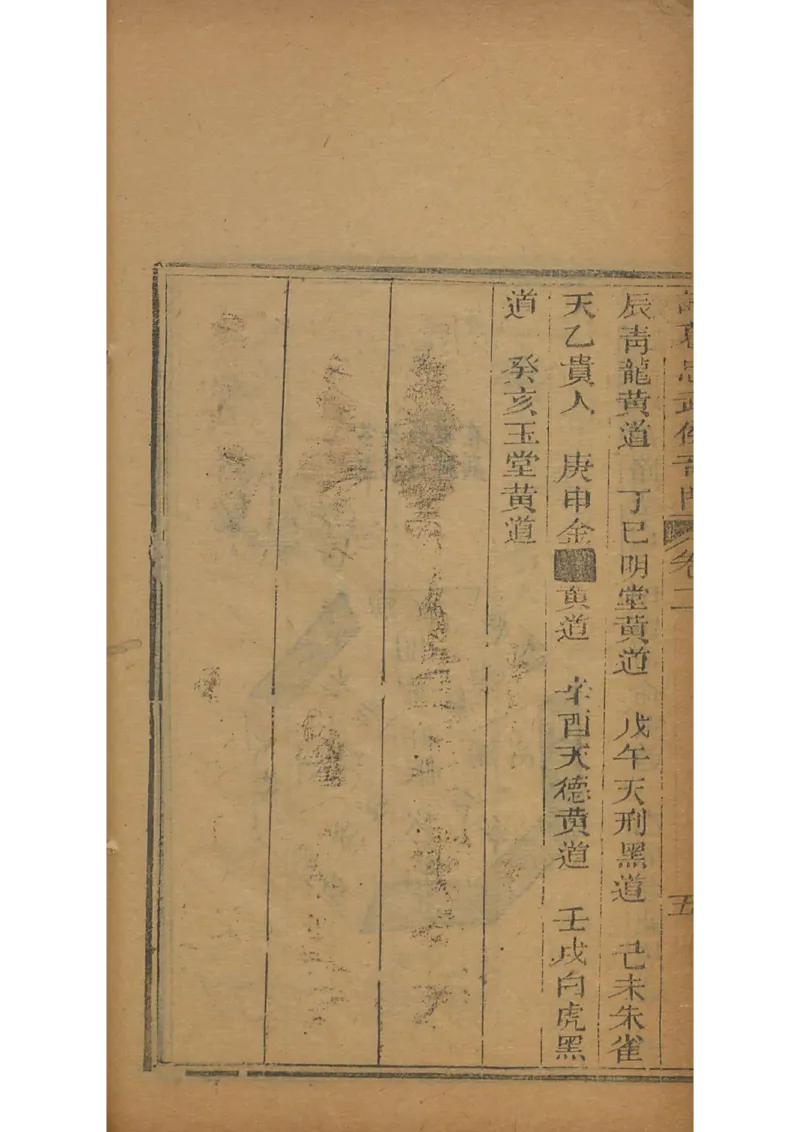 武侯奇門 卷二 五
辰青龍黄道 丁巳明堂黄道 戊午天刑黑道 己未朱雀
天乙貴人 庚申金 黄道 辛酉天德黄道 壬戌白虎黑
道 癸亥玉堂黄道